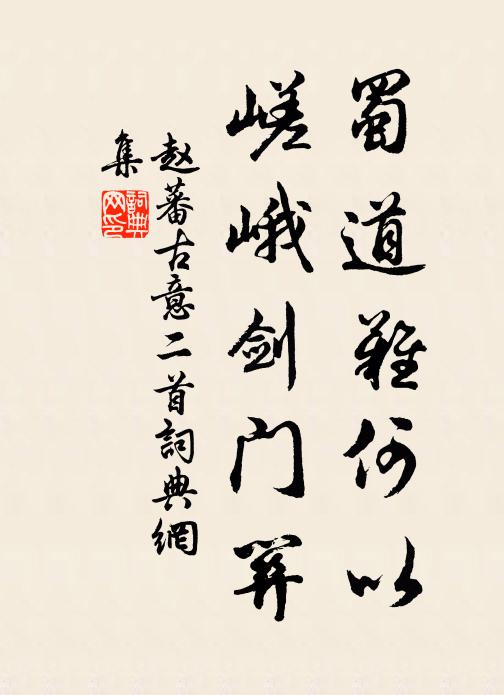 蜀道难何以
嵯峨剑门关
赵蕃古意二首词典網
集
詞典網印